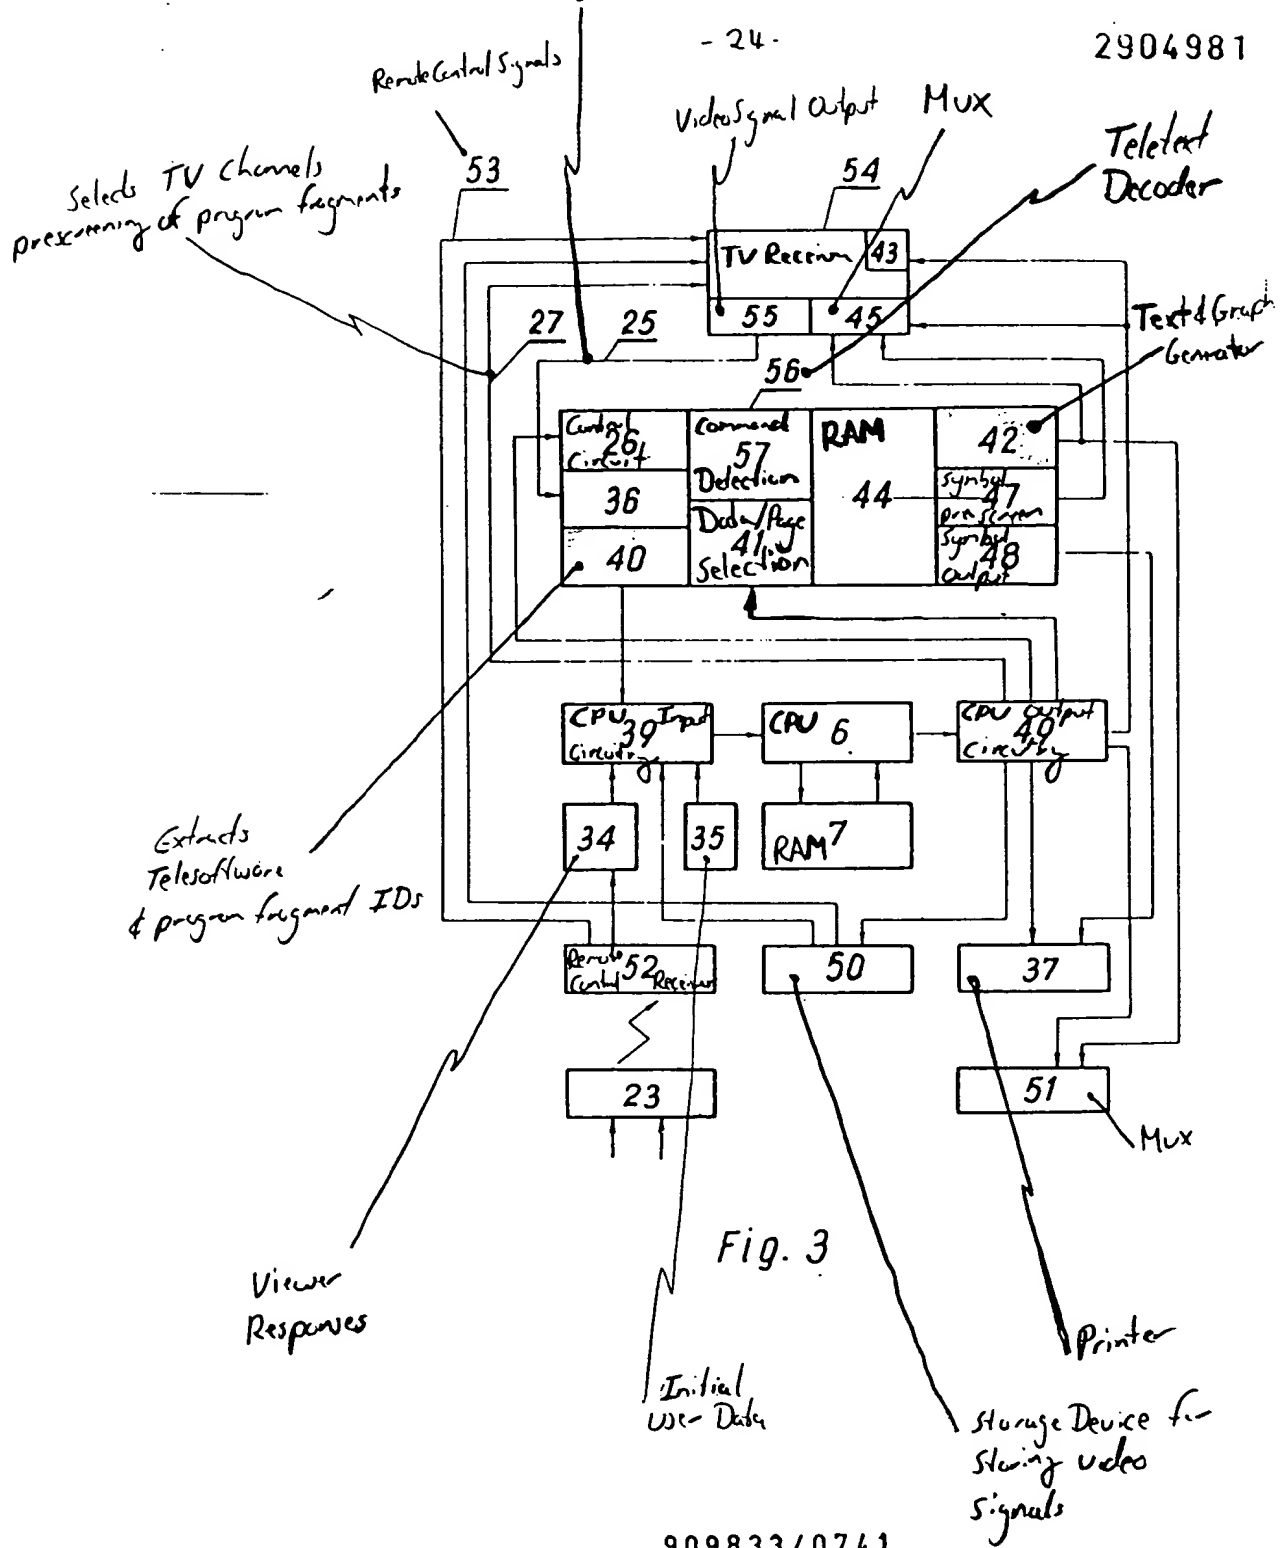 - 24 -
2904981
Remote Control Signals
Video Signal Output
Mux
Teletext
Decoder
Selects TV Channels
prescreening of program fragments
53
54
TV Receiver
43
55
45
27
25
56
Text & Graph
Generator
Control
26
Circuit
Command
57
Detection
RAM
44
42
36
Symbol
47
prescreen
40
Data/Page
41
Selection
Symbol
48
Output
CPU Input
39
Circuitry
CPU 6
CPU Output
49
Circuitry
34
35
RAM 7
Extracts
Telesoftware
& program fragment IDs
Remote
52
Control Receiver
50
37
23
51
Mux
Fig. 3
Viewer
Responses
Printer
Initial
User Data
Storage Device for
Storing video
Signals
909833/0741